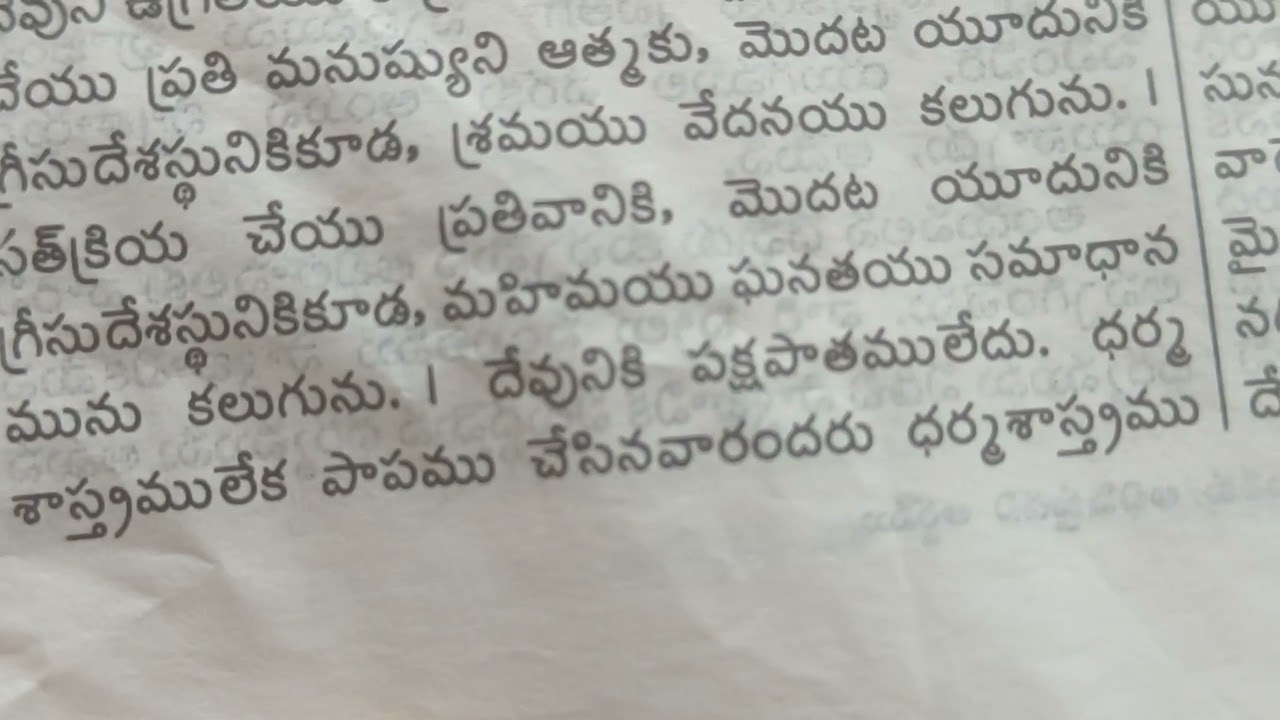 చేయు ప్రతి మనుష్యుని ఆత్మకు, మొదట యూదునికి
గ్రీసుదేశస్థునికికూడ, శ్రమయు వేదనయు కలుగును. |
సత్‌క్రియ చేయు ప్రతివానికి, మొదట యూదునికి
గ్రీసుదేశస్థునికికూడ, మహిమయు ఘనతయు సమాధాన
మును కలుగును. | దేవునికి పక్షపాతములేదు. ధర్మ
శాస్త్రములేక పాపము చేసినవారందరు ధర్మశాస్త్రము